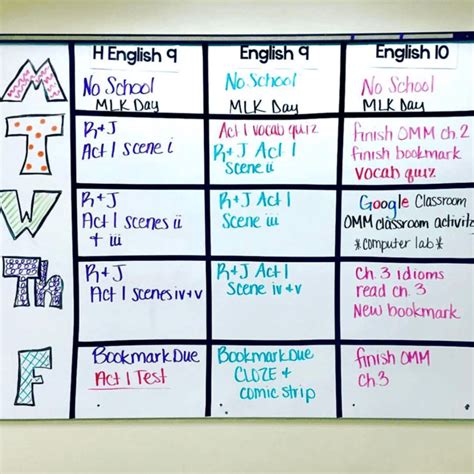 H English 9
English 9
English 10
M
No School
MLK Day
No School
MLK Day
No School
MLK Day
T
R+J
Act 1 scene i
Act 1 vocab quiz
R+J Act 1
Scene ii
finish OMM ch 2
finish bookmark
vocab quiz
W
R+J
Act 1 scenes ii
+ iii
R+J Act 1
Scene iii
Google Classroom
OMM classroom activitz
*computer lab*
Th
R+J
Act 1 scenes iv+v
R+J Act 1
Scene iv+v
Ch. 3 idioms
read ch. 3
New bookmark
F
Bookmark Due
Act 1 Test
Bookmark Due
CLOZE +
comic strip
finish OMM
Ch 3